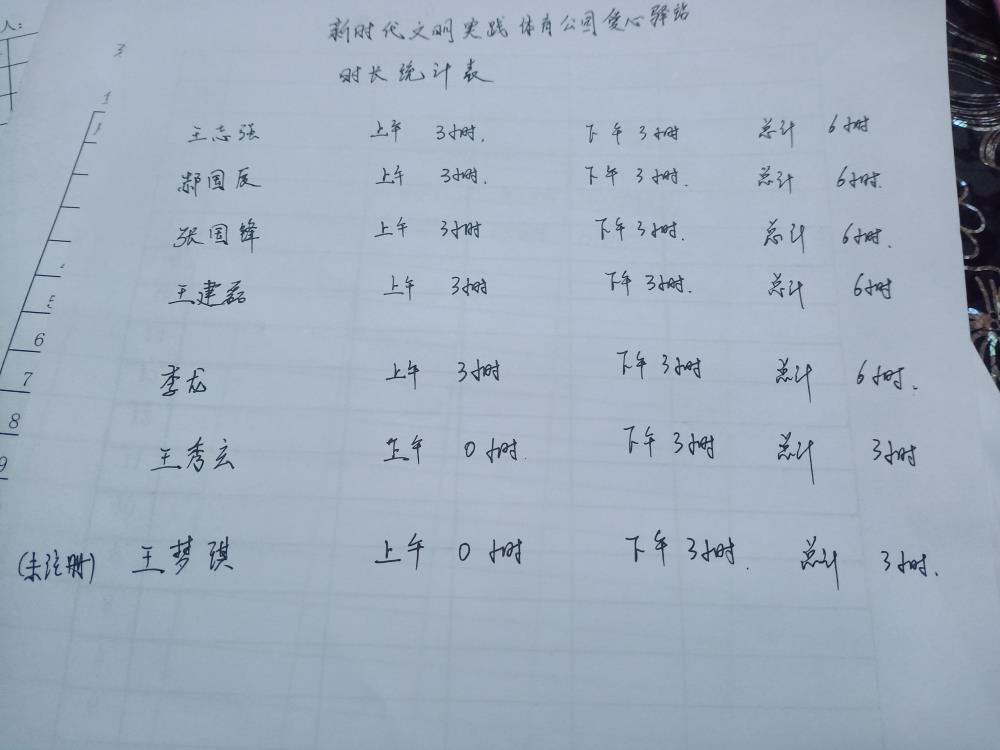 人:
新时代文明实践体育公园爱心驿站
时长统计表
王志强 上午 3小时. 下午 3小时 总计 6小时
郝国辰 上午 3小时. 下午 3小时. 总计 6小时.
张国锋 上午 3小时 下午 3小时. 总计 6小时.
王建磊 上午 3小时 下午 3小时. 总计 6小时
李龙 上午 3小时 下午 3小时 总计 6小时.
王秀玄 上午 0小时. 下午 3小时 总计 3小时
(未注册) 王梦琪 上午 0小时 下午 3小时. 总计 3小时.
6
7
8
9